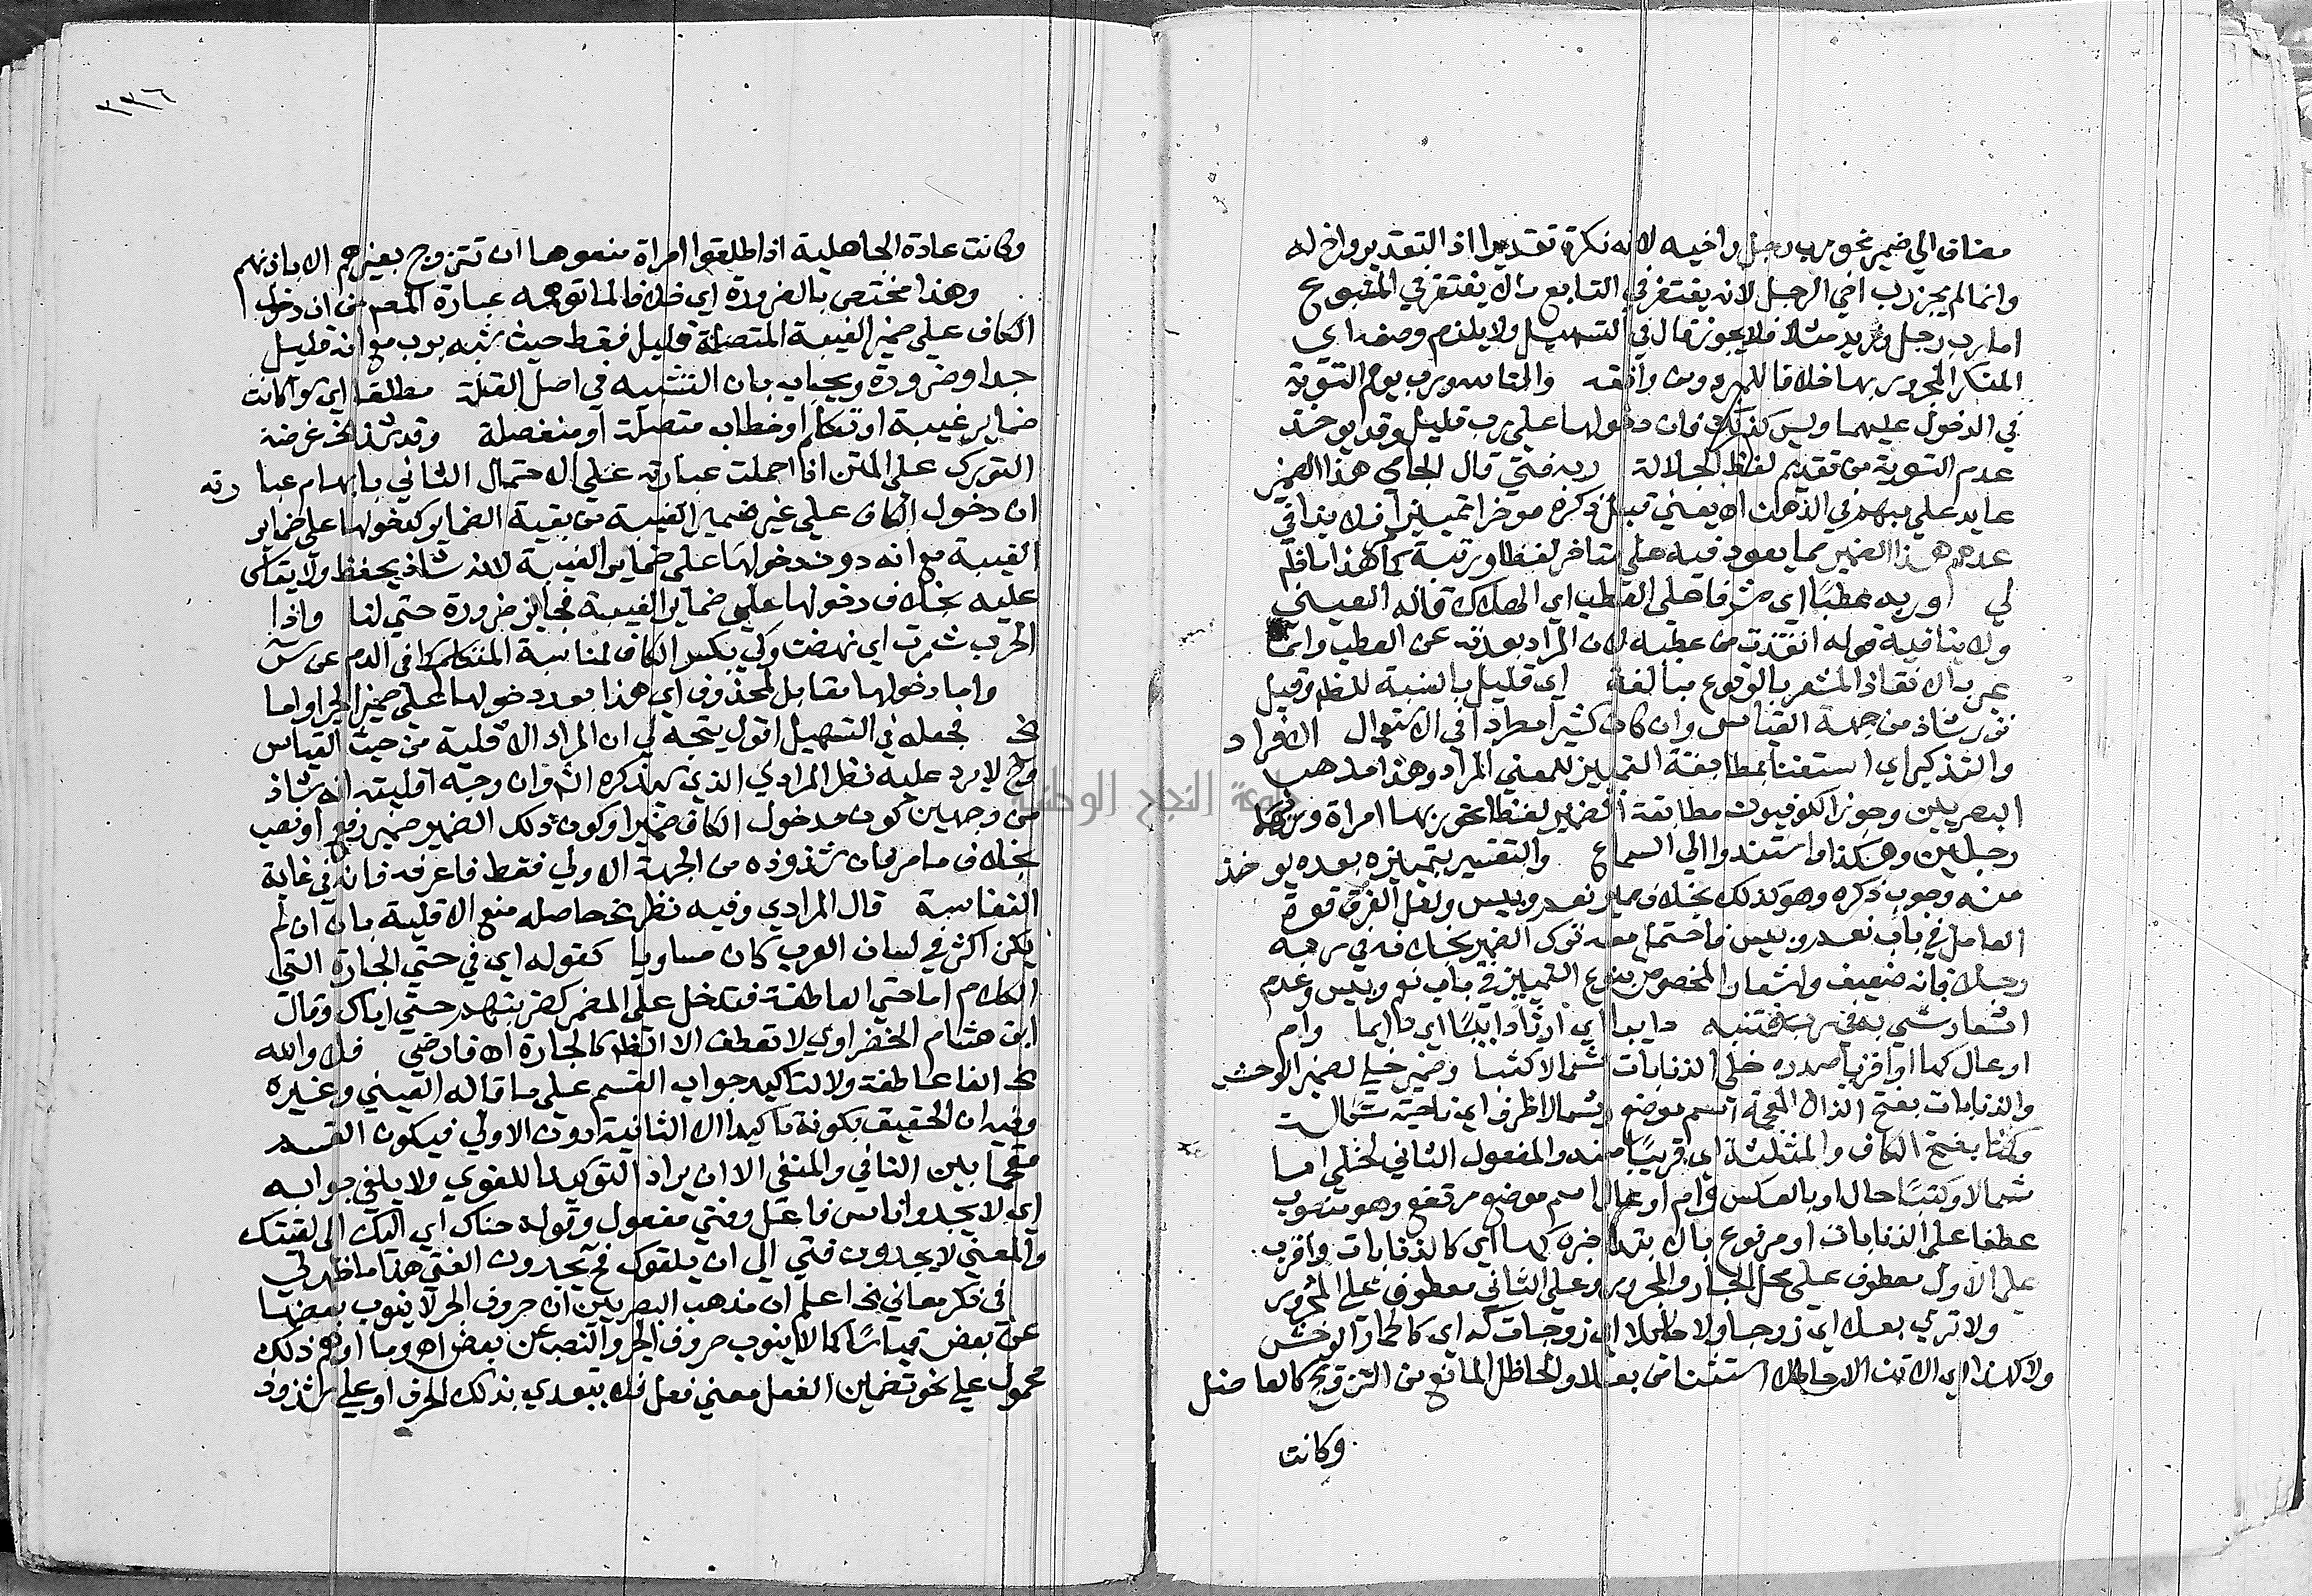 مضاف الي ضمير نحو رب رجل واخيه لانه نكرة تقديرا اذ التقدير واخ له
وانما لم يجز رب اخي الرجل لانه يغتفر في التابع مالا يغتفر في المتبوع
اما رب رجل وزيد مثلا فلا يجوز قال في التسهيل ولا يلزم وصفه اي
المنكر المجرور بها خلافا للمبرد ومن وافقه والتا لله ورب يوهم التسوية
في الدخول عليهما وليس كذلك فان دخولها على رب قليل وقد يوخذ
عدم التسوية من تقديم لفظ الجلالة ربه فتي قال الجامي هذا الضمير
عايد علي مبهم في الذهن اه يعني قبل ذكره موخرا تمييزا فلا ينافي
عدهم هذا الضمير مما يعود فيه على متاخر لفظا ورتبة كما هذا ما ظهر
لي وربه عطبا اي مشرفا على العطب اي الهلاك قاله العيني
ولا ينافيه قوله انقذت من عطبه لان المراد بعدته عن العطب وانما
عبر بالانقاذ المشعر بالوقوع مبالغة اي قليل بالنسبة للظاهر وقيل
نزر شاذ من جهة القياس وان كان كثيرا مطردا في الاستعمال الافراد
والتذكير اي استغنا بمطابقة التمييز للمعني المراد وهذا مذهب
البصريين وجوز الكوفيون مطابقة الضمير لفظا نحو ربها امراة وربهما
رجلين وهكذا واستندوا الي السماع والتفسير بتمييز بعده يوخذ
منه وجوب ذكره وهو كذلك بخلاف مميز نعم وبيس ولعل الفرق قوة
العامل في باب نعم وبيس فاحتمل معه ترك الضمير بخلافه في ربه
رجلا فانه ضعيف واشعار المخصوص بنوع التمييز في باب نعم وبيس وعدم
اشعار شي به في ربه فتنبه دايبا اي دايما وام
اوعال كها او اقربا صدره خلى الذنابات شمالا كثبا وضمير خلى لضمير الوحش
والذنابات بفتح الذال المعجمة اسم موضع وشمالا ظرف اي ناحية شمال
وكثبا بفتح الكاف والمثلثة اي قريبا منه والمفعول الثاني لخلى اما
شمالا وكثبا حال او بالعكس وام اوعال اسم موضع مرتفع وهو منصوب
عطفا على الذنابات او مرفوع بالابتدا خبره كها اي كالذنابات واقرب
على الاول معطوف على محل الجار والمجرور وعلى الثاني معطوف على المجرور
ولا تري بعلا اي زوجا ولا حلايلا اي زوجات كه اي كالحمار الوحش
ولا كهن اي الاتن الا حاظلا استثنا من بعلا والحاظل المانع من التزويج كالعاضل
وكانت
٣٣٦
وكانت عادة الجاهلية اذا طلقوا امراة منعوها ان تتزوج بغيرهم الا باذنهم
وهذا مختص بالضرورة اي خلافا لما توهمه عبارة المصم من ان دخول
الكاف على ضمير الغيبة المتصلة قليل فقط حيث شبه برب مع انه قليل
جدا وضرورة ويجاب بان التشبيه في اصل القلة مطلقا اي سوا كانت
ضماير غيبة او تكلم او خطاب متصلة او منفصلة وقد شذ الخ غرضه
التورك على المتن اذا حملت عبارته على الاحتمال الثاني بايهام عبارته
ان دخول الكاف على غير ضمير الغيبة من بقية الضماير كدخولها على ضماير
الغيبة مع انه دون دخولها على ضماير الغيبة لانه شاذ يحفظ ولا يقاس
عليه بخلاف دخولها على ضماير الغيبة فجايز ضرورة حتي لنا واذا
الحرب شمرت اي نهضت وكي بكسر الكاف لمناسبة المتكلم
واما دخولها مقابل لمحذوف اي هذا بعد دخولها على ضمير الجر اواما
الخ فجعله في التسهيل اقول يتجه لي ان المراد الاقلية من حيث القياس
وح لا يرد عليه نظر المرادي الذي سيذكره الش وان وجه اقليته انه شاذ
من وجهين كون مدخول الكاف ضميرا وكون ذلك الضمير ضمير رفع او نصب
بخلاف ما مر فان شذوذه من الجهة الاولي فقط فاعرفه فانه في غاية
النفاسة قال المرادي وفيه نظر الخ حاصله منع الاقلية بان ان لم
يكن اكثر في لسان العرب كان مساويا كقوله اي في حتي الجارة التي
الكلام اما حتي العاطفة فتدخل على المضمر كضربتهم حتي اياك وقال
ابن هشام الخضراوي لا تعطف الا الظاهر كالجارة اه فارضي فلا والله
الخ الفا عاطفة ولا لتاكيد جواب القسم على ما قاله العيني وغيره
وفيه ان الحقيق بكونه تاكيدا لا الثانية دون الاولي فيكون القسم
مقحما بين النافي والمنفي الا ان يراد التوكيد اللغوي ولا يلفي جوابه
اي لا يجد واناس فاعل وفتي مفعول وقوله حتاك اي اليك الي لقيتك
والمعني لا يجدون فتي الي ان يلقوك فح يجدون الفتي هذا ما ظهر لي
في ذكر معاني الخ اعلم ان مذهب البصريين ان حروف الجر لا ينوب بعضها
عن بعض قياسا كما لا ينوب حروف الجزم والنصب عن بعض اه وما اوهم ذلك
محمول علي نحو تضمين الفعل معني فعل يتعدي بذلك الحرف او على شذوذ
جامعة النجاح الوطنية